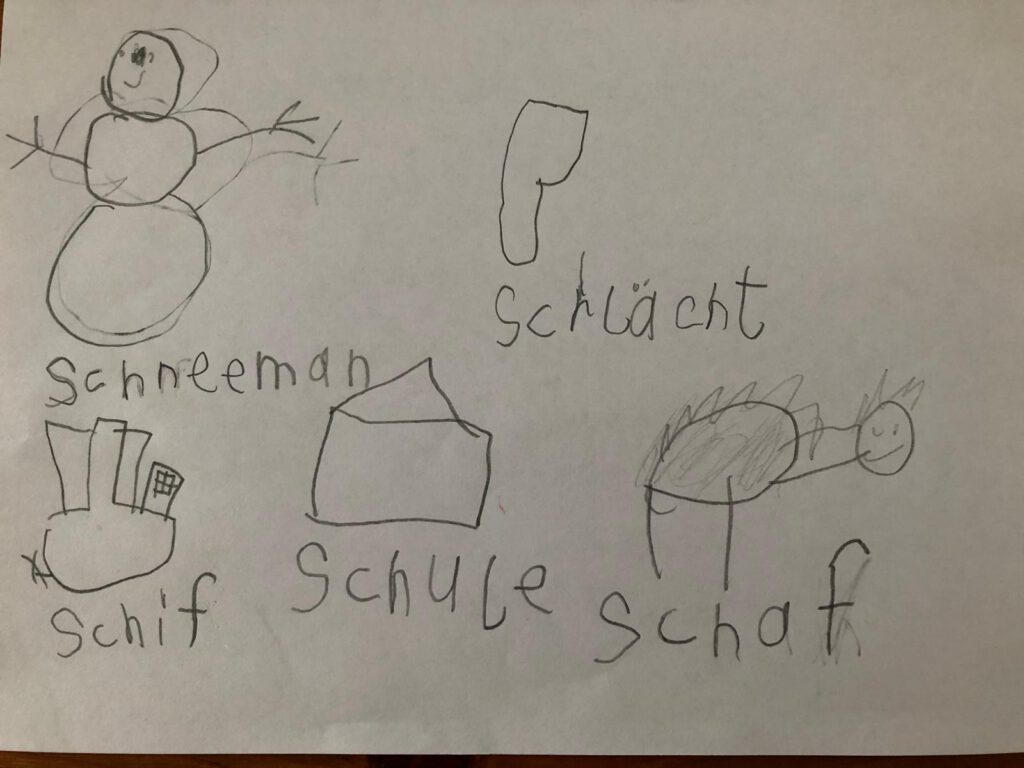 Schlächt
Schneeman
Schif
Schule
Schaf